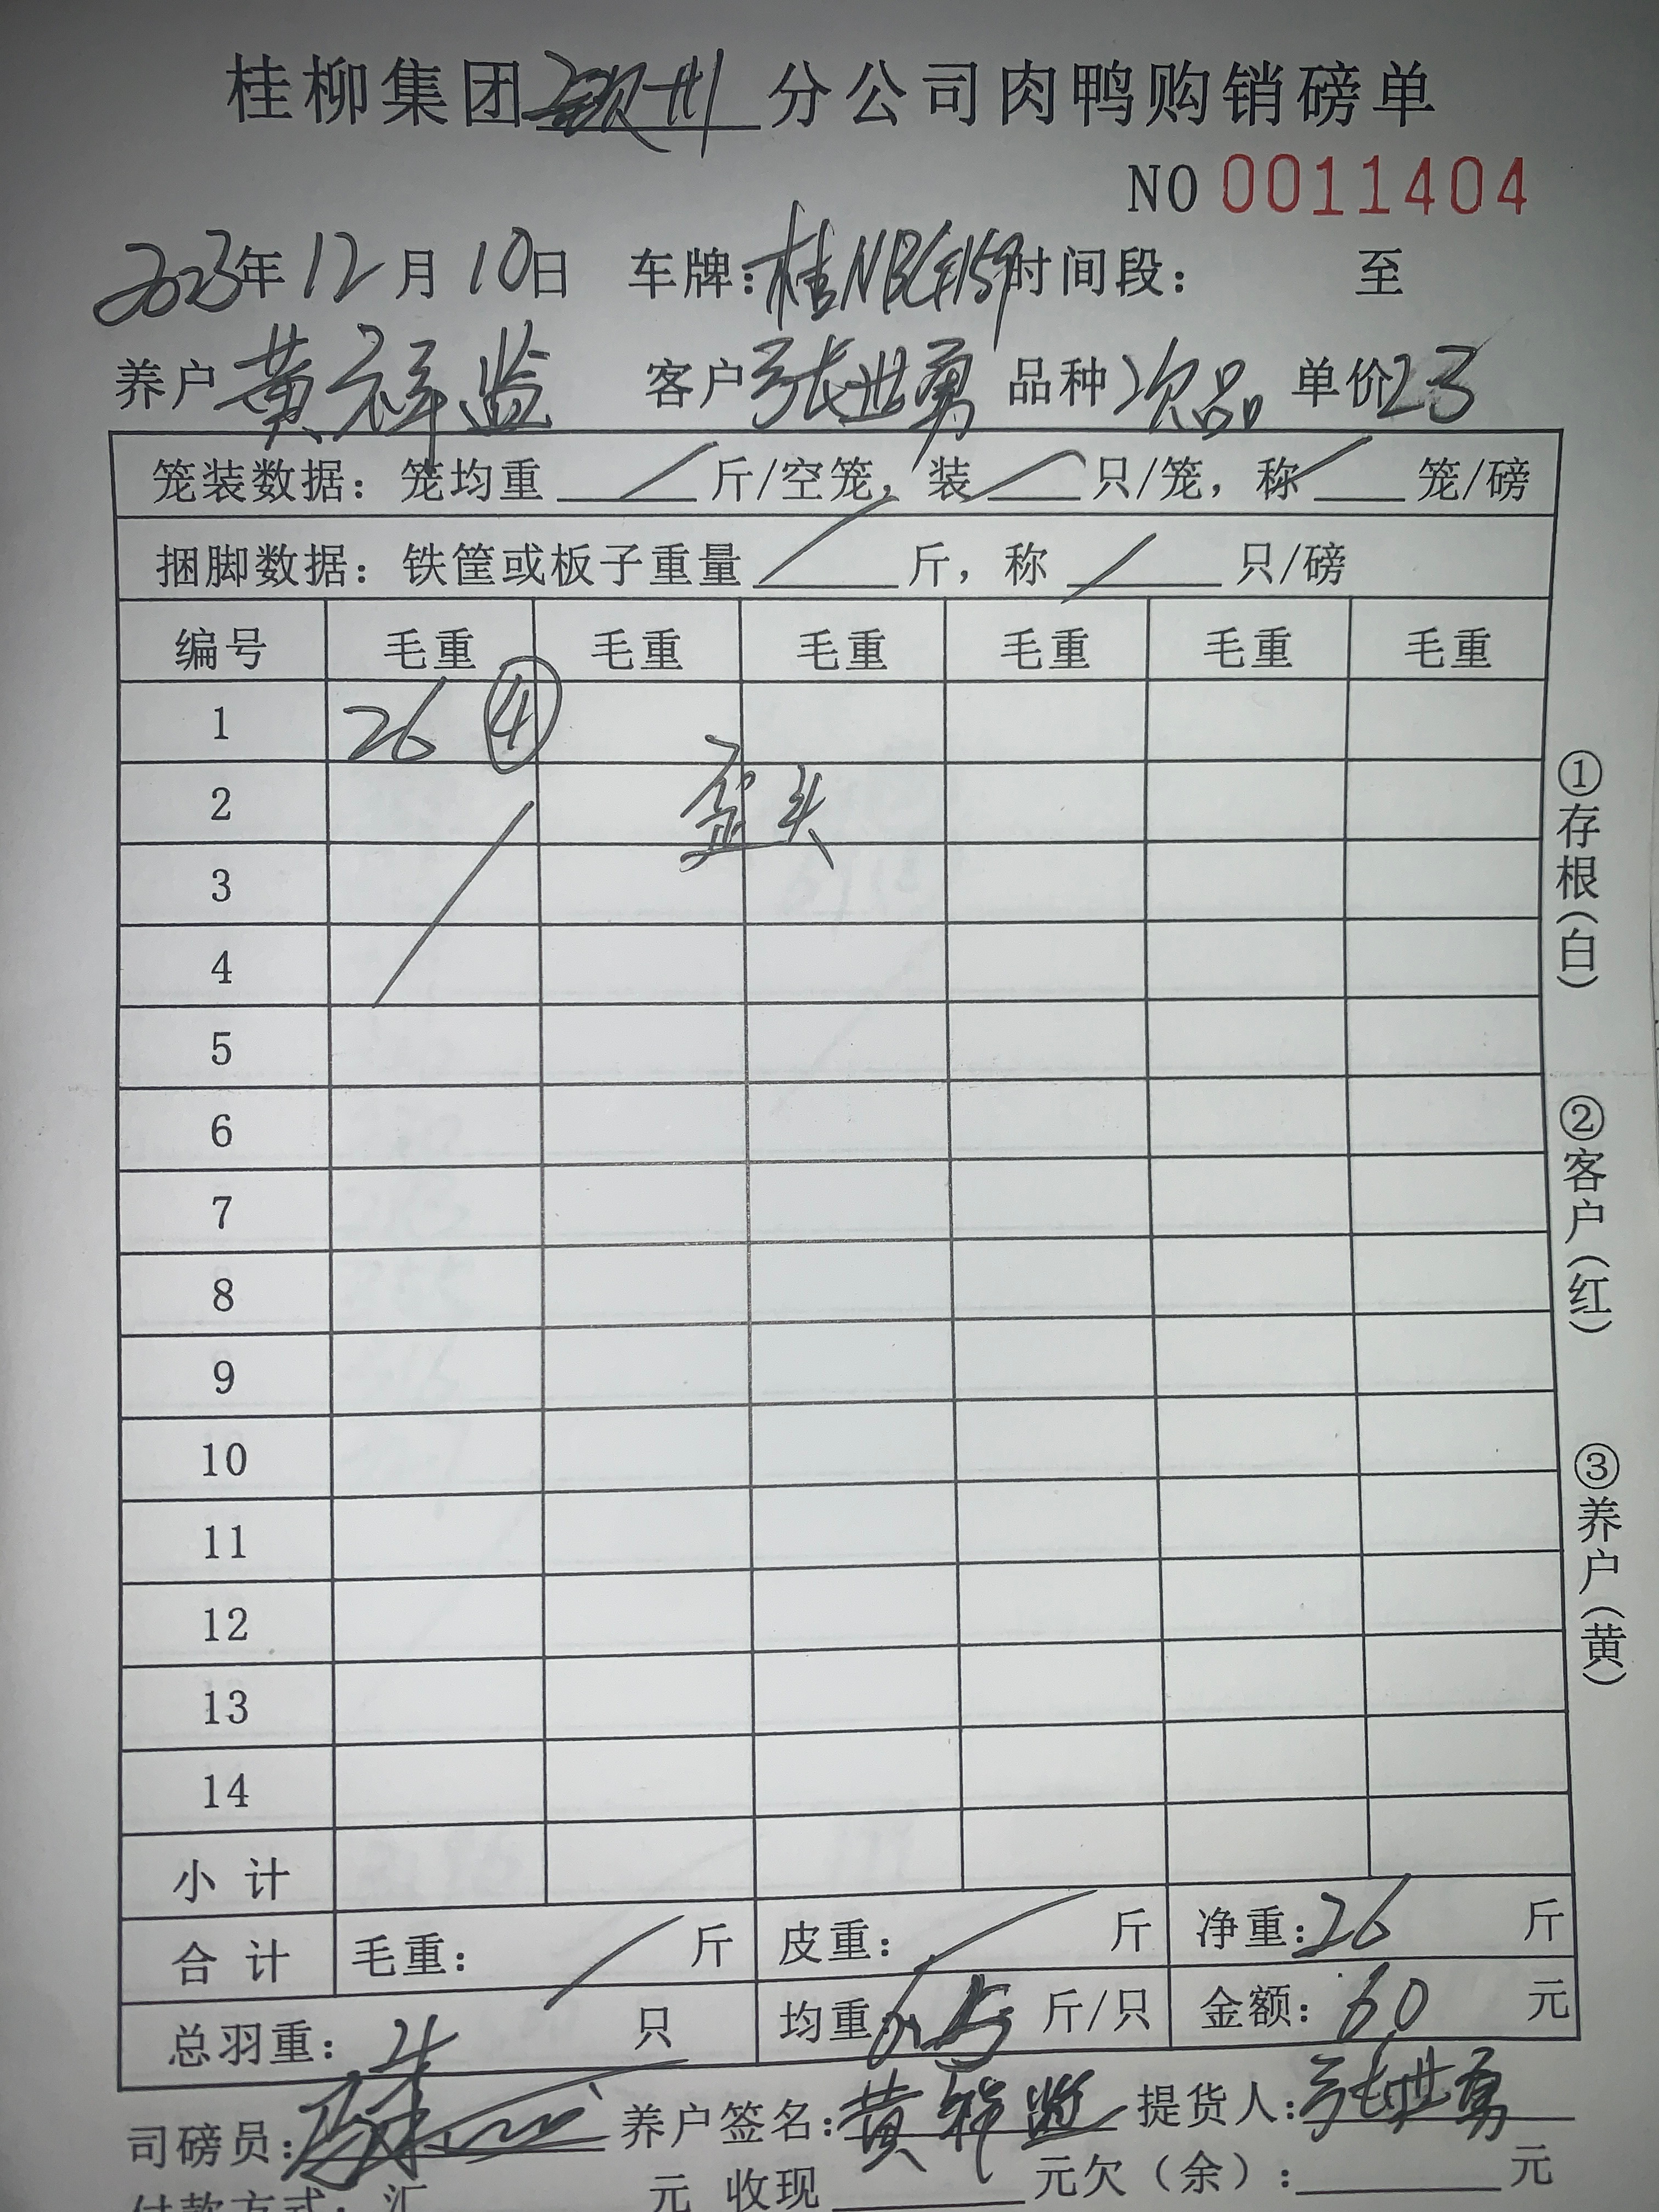 桂柳集团钦州分公司肉鸭购销磅单
NO 0011404
2023年12月10日 车牌：桂NBE159时间段： 至
养户黄祥益 客户张世勇 品种次品 单价23
笼装数据：笼均重 / 斤/空笼，装 / 只/笼，称 / 笼/磅
捆脚数据：铁筐或板子重量 / 斤，称 / 只/磅
编号 毛重 毛重 毛重 毛重 毛重 毛重
1 26 ④
2 歪头
3
4
5
6
7
8
9
10
11
12
13
14
小计
合计 毛重： / 斤 皮重： / 斤 净重：26 斤
总羽重：4 只 均重6.5斤/只 金额：60 元
司磅员： 养户签名：黄祥益 提货人：张世勇
付款方式：汇 元 收现 元欠（余）： 元
①存根（白）
②客户（红）
③养户（黄）